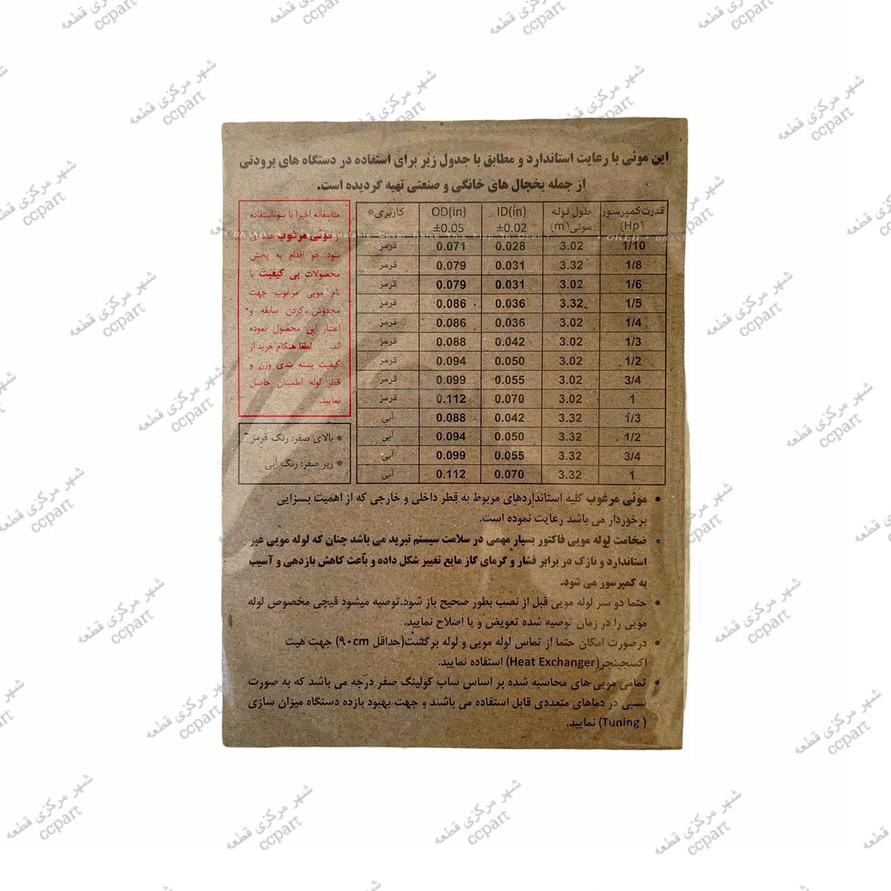 این موئی با رعایت استاندارد و مطابق با جدول زیر برای استفاده در دستگاه های برودتی
از جمله یخچال های خانگی و صنعتی تهیه گردیده است.
قدرت کمپرسور (Hp) طول لوله موئی (m) ID(in) ±0.02 OD(in) ±0.05 کاربری*
1/10 3.02 0.028 0.071 قرمز
1/8 3.32 0.031 0.079 قرمز
1/6 3.02 0.031 0.079 قرمز
1/5 3.32 0.036 0.086 قرمز
1/4 3.02 0.036 0.086 قرمز
1/3 3.02 0.042 0.088 قرمز
1/2 3.02 0.050 0.094 قرمز
3/4 3.02 0.055 0.099 قرمز
1 3.02 0.070 0.112 قرمز
1/3 3.32 0.042 0.088 آبی
1/2 3.32 0.050 0.094 آبی
3/4 3.32 0.055 0.099 آبی
1 3.32 0.070 0.112 آبی
متاسفانه اخیرا با سوءاستفاده
از موئی مرغوب عده ای
سود جو اقدام به پخش
محصولات بی کیفیت با
نام مویی مرغوب جهت
مخدوش کردن سابقه و
اعتبار این محصول نموده
اند. لطفا هنگام خرید از
کیفیت بسته بندی وزن و
قطر لوله اطمینان حاصل
نمایید.
* بالای صفر: رنگ قرمز
* زیر صفر: رنگ آبی
• موئی مرغوب کلیه استانداردهای مربوط به قطر داخلی و خارجی که از اهمیت بسزایی
برخوردار می باشد رعایت نموده است.
• ضخامت لوله مویی فاکتور بسیار مهمی در سلامت سیستم تبرید می باشد چنان که لوله مویی غیر
استاندارد و نازک در برابر فشار و گرمای گاز مایع تغییر شکل داده و باعث کاهش بازدهی و آسیب
به کمپرسور می شود.
• حتما دو سر لوله مویی قبل از نصب بطور صحیح باز شود.توصیه میشود قیچی مخصوص لوله
مویی را در زمان توصیه شده تعویض و یا اصلاح نمایید.
• درصورت امکان حتما از تماس لوله مویی و لوله برگشت(حداقل ۹۰cm) جهت هیت
اکسچینجر(Heat Exchanger) استفاده نمایید.
• تمامی مویی های محاسبه شده بر اساس ساب کولینگ صفر درجه می باشد که به صورت
نسبی در دماهای متعددی قابل استفاده می باشند و جهت بهبود بازده دستگاه میزان سازی
(Tuning) نمایید.
شهر مرکزی قطعه
ccpart